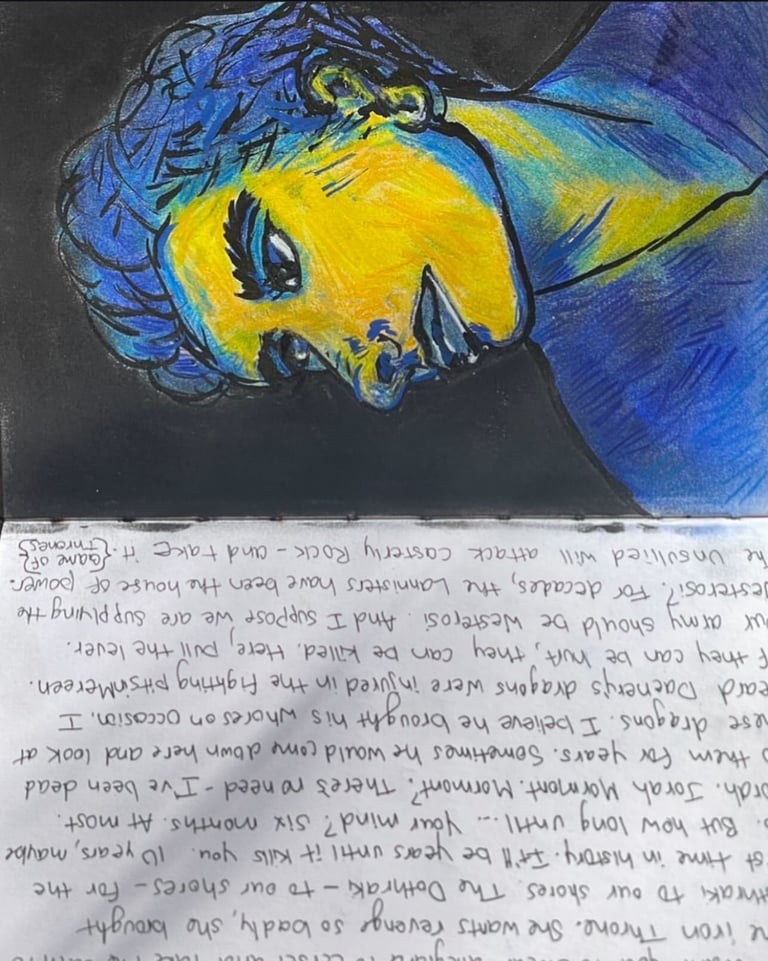 to Cersei and take the
he iron Throne. She wants revenge so badly, she brought
thraki to our shores. The Dothraki - to our shores - for the
st time in history. It'll be years until it kills you. 10 years, maybe
. But how long until... your mind? Six months. At most.
orah. Jorah Mormont. Mormont? There's no need - I've been dead
o them for years. Sometimes he would come down here and look at
hese dragons. I believe he brought his whores on occasion. I
eard Daenerys dragons were injured in the fighting pits in Mereen.
f they can be hurt, they can be killed. Here, pull the lever.
ur army should be Westerosi. And I suppose we are supplying the
esterosi?. For decades, the Lannisters have been the house of power.
he Unsullied will attack Casterly Rock - and take it. {Game of
Thrones}